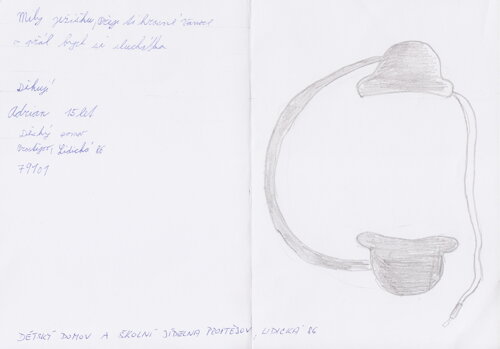 Milý ježíšku, přeji ti krásné vánoce
a přál bych si sluchátka
Děkuji
Adrian 15 let
Dětský domov
Prostějov, Lidická 86
79101
DĚTSKÝ DOMOV A ŠKOLNÍ JÍDELNA PROSTĚJOV, LIDICKÁ 86